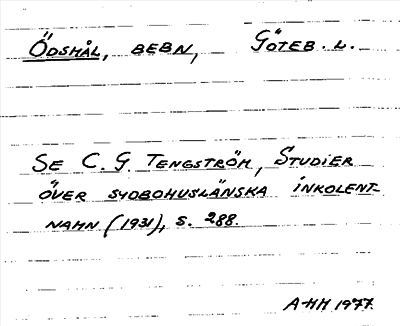 ÖDSMÅL, BEBN, GÖTEB. L.
SE C. G. TENGSTRÖM, STUDIER
ÖVER SYDBOHUSLÄNSKA INKOLENT-
NAMN (1931), S. 288.
AHH 1977.